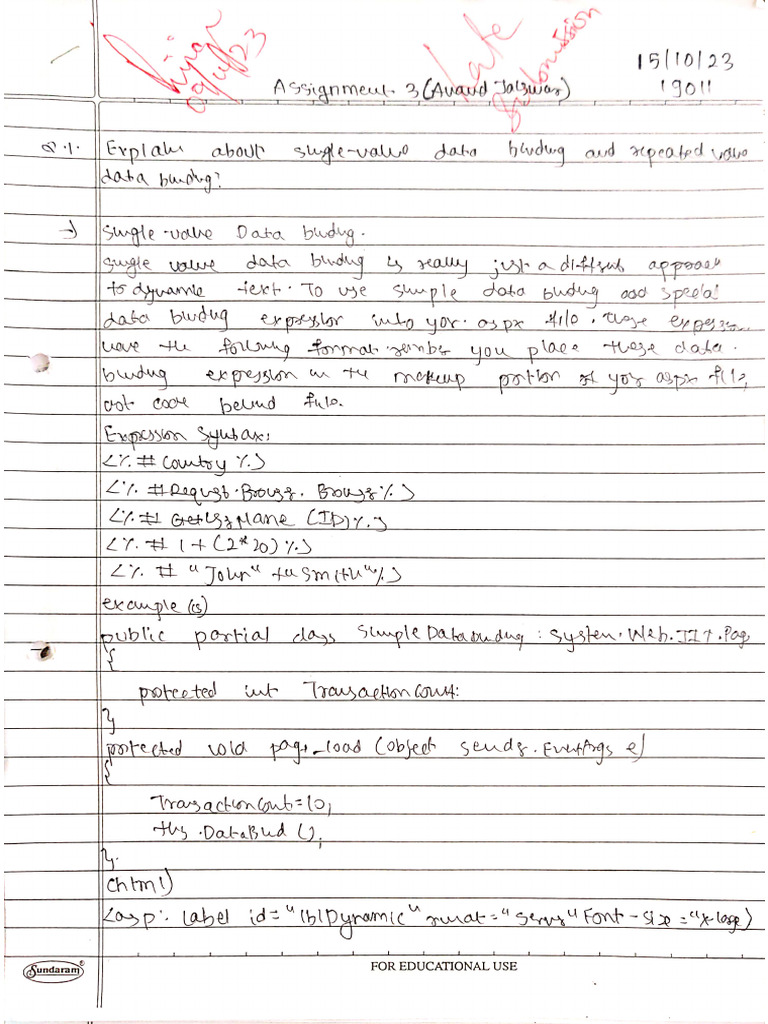 09/11/23
Late
Submission
15/10/23
Assignment 3 (Anand Jaiswar)
19011
Q.1. Explain about single-value data binding and repeated value
data binding?
→ Single-value Data binding.
single value data binding is really just a different approach
to dynamic text. To use simple data binding add special
data binding expression into your .aspx file. These expression
have the following format. remember you place these data.
binding expression in the makeup portion of your aspx file,
not code behind file.
Expression Syntax:
<%.# Country %.>
<%.#Request.Browser.Browser%.>
<%.# GetUserName (ID)%.>
<%.# 1+(2*20)%.>
<%.# "John" + "Smith"%.>
example (cs)
public partial class SimpleDatabinding : System.Web.UI.Page
{
protected int TransactionCount:
}
protected void page_load (object sender. EventArgs e)
{
TransactionCount=10;
this.DataBind();
}.
(html)
<asp: Label id="lblDynamic" runat="server" Font-size="x-large>
Sundaram®
FOR EDUCATIONAL USE